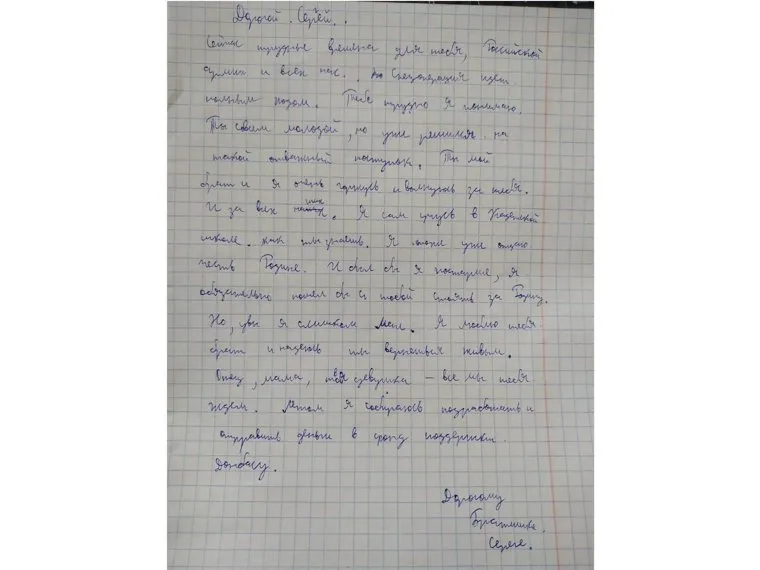 Дорогой Сергей.
Сейчас трудные времена для тебя, Российской
армии и всех нас. Спецоперация идет
полным ходом. Тебе трудно я понимаю.
Ты совсем молодой, но уже решился на
такой отважный поступок. Ты мой
брат и я очень горжусь и волнуюсь за тебя.
И за всех них. Я сам учусь в Кадетской
школе. как ты знаешь. Я тоже уже отдаю
честь Родине. И был бы я постарше, я
обязательно пошел бы с тобой стоять за
Но, увы я слишком мал. Я люблю тебя
брат и надеюсь ты вернешься живым.
Отец, мама, твоя девушка – все мы тебя
ждем. Летом я собираюсь подработать и
отправить деньги в фонд поддержки
Донбассу.
Дорогому
Братишке
Сереге.